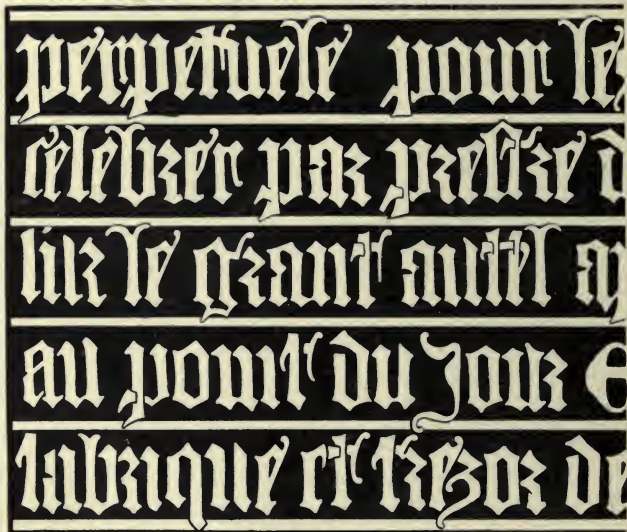 perpetuele pour les
celebrer par prestre d
sur le grant autel ap
au point du Jour E
fabrique et trezor de